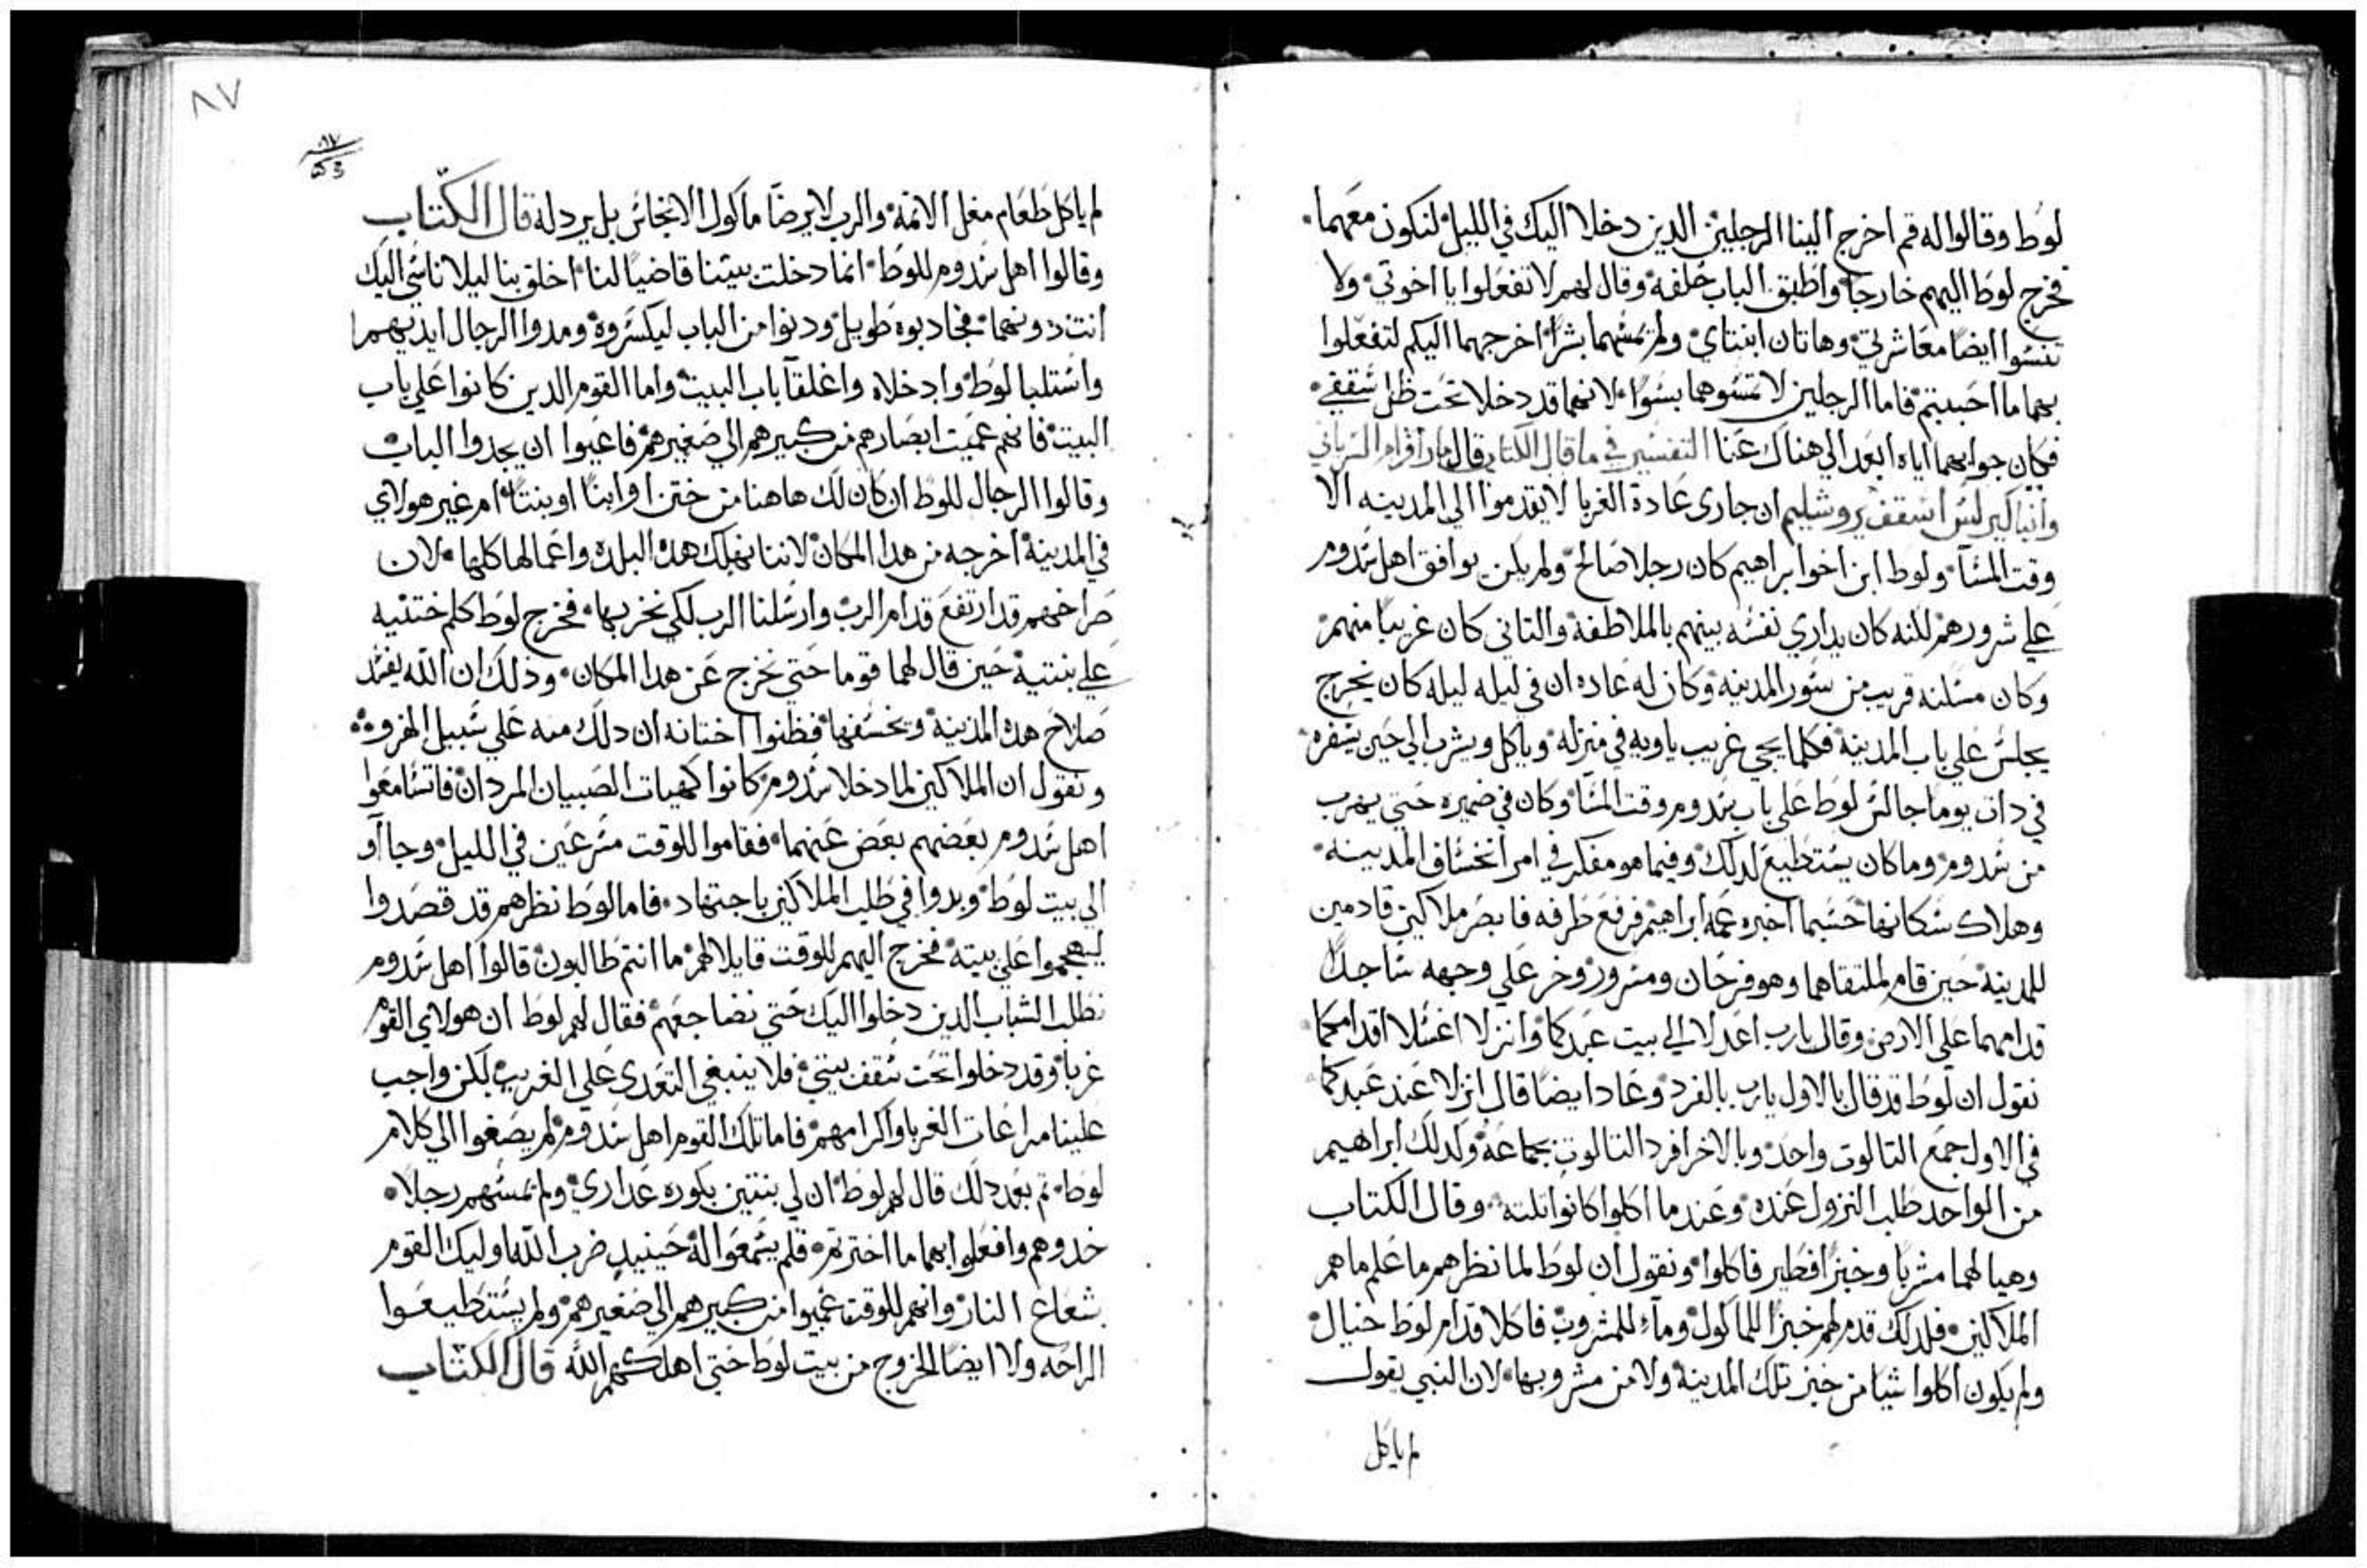 لوط وقالوا له قم اخرج الينا الرجلين الدين دخلا اليك في الليل لنكون معهما
فخرج لوط اليهم خارجا واطبق الباب خلفه وقال لهم لا تفعلوا يا اخوتي ولا
تنسوا ايضا معاشرتي وهاتان ابنتاي ولم تمسهما بشرا اخرجهما اليكم لتفعلوا
بهما ما احببتم فاما الرجلين لا تمسوهما بسوا لانهما قد دخلا تحت ظل سقفي
فكان جوابهما اياه ابعد الي هناك عنا التفسير في ما قال الكتاب قال مار افرام السرياني
وانبا كيرلس اسقف يروشليم ان جاري عادة الغربا لا يقدموا الي المدينه الا
وقت المسا ولوط ابن اخو ابراهيم كان رجلا صالح ولم يكن يوافق اهل سدوم
علي شرورهم لكنه كان يداري نفسه بينهم بالملاطفة والتاني كان غريبا منهم
وكان مسكنه قريب من سور المدينه وكان له عاده ان في ليله ليله كان يخرج
يجلس علي باب المدينة فكلما يجي غريب ياويه في منزله وياكل ويشرب الي حين يسفره
في دات يوما جالس لوط علي باب سدوم وقت المسا وكان في ضميره حتي يهرب
من سدوم وما كان يستطيع لدلك وفيما هو مفكر في امر انخساف المدينه
وهلاك سكانها حسبما اخبره عمه ابراهيم فرفع طرفه فابصر ملاكين قادمين
للمدينة حين قام لملتقاهما وهو فرحان ومسرور وخر علي وجهه ساجدا
قدامهما علي الارض وقال يارب اعدلا الي بيت عبدكما وانزلا اغسلا اقدامكما
نقول ان لوط قد قال بالاول يارب بالفرد وعاد ايضا قال انزلا عند عبدكما
في الاول جمع التالوت واحد وبالاخر افرد التالوت بجماعة وكدلك ابراهيم
من الواحد طلب النزول عنده وعند ما اكلوا كانوا تلتة وقال الكتاب
وهيا لهما مشربا وخبزا فطير فاكلوا ونقول ان لوط لما نظرهم ما علم ما هم
الملاكين فلدلك قدم لهم خبزا للماكول وماء للمشروب فاكلا قدام لوط خيال
ولم يكون اكلوا شيا من خبز تلك المدينة ولا من مشروبها لان النبي يقول
لم ياكل
٨٧
لم ياكل طعام مغل الاتمة والرب لا يرضا ماكول الانجاس بل يردله قال الكتاب
وقالوا اهل سدوم للوط انما دخلت بيتنا قاضيا لنا اخلق بنا ليلا ناسي اليك
انت دونهما فجادبوه طويل ودنوا من الباب ليكسروه ومدوا الرجال ايديهم
واستلبا لوط وادخلاه واغلقا باب البيت واما القوم الدين كانوا علي باب
البيت فانهم عميت ابصارهم من كبيرهم الي صغيرهم فاعيوا ان يجدوا الباب
وقالوا الرجال للوط ان كان لك هاهنا من ختن او ابنا او بنتا ام غير هولاي
في المدينة اخرجه من هدا المكان لاننا نهلك هده البلده واعمالها كلها لان
صراخهم قد ارتفع قدام الرب وارسلنا الرب لكي نخربها فخرج لوط كلم ختنيه
علي بنتيه حين قال لهما قوما حتي نخرج عن هدا المكان وذلك ان الله يفسد
صلاح هده المدينة ويخسفها فظنوا اختانه ان دلك منه علي سبيل الهزو
ونقول ان الملاكين لما دخلا سدوم كانوا كهيات الصبيان المردان فاتسامعوا
اهل سدوم بعضهم بعض عنهما فقاموا للوقت مسرعين في الليل وجاآو
الي بيت لوط وبدوا في طلب الملاكين باجتهاد فاما لوط نظرهم قد قصدوا
ليهجموا علي بيته فخرج اليهم للوقت قايلا لهم ما انتم طالبون قالوا اهل سدوم
نطلب الشباب الدين دخلوا اليك حتي نضاجعهم فقال لهم لوط ان هولاي القوم
غربا وقد دخلوا تحت سقف بيتي فلا ينبغي التعدي علي الغريب لكن واجب
علينا مراعات الغربا واكرامهم فاما تلك القوم اهل سدوم لم يصغوا الي كلام
لوط تم بعد دلك قال لهم لوط ان لي بنتين بكوره عداري ولم تمسهم رجلا
خدوهم وافعلوا بهما ما اخترتم فلم يسمعوا له حينيد ضرب الله اوليك القوم
بشعاع النار وانهم للوقت عميوا من كبيرهم الي صغيرهم ولم يستطيعوا
الراحه ولا ايضا الخروج من بيت لوط حتي اهلكهم الله قال الكتاب